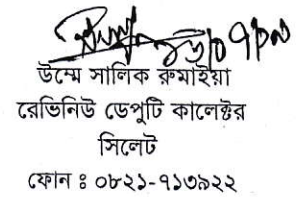 উম্মে সালিক রুমাইয়া
রেভিনিউ ডেপুটি কালেক্টর
সিলেট
ফোন ঃ ০৮২১-৭১৩৯২২